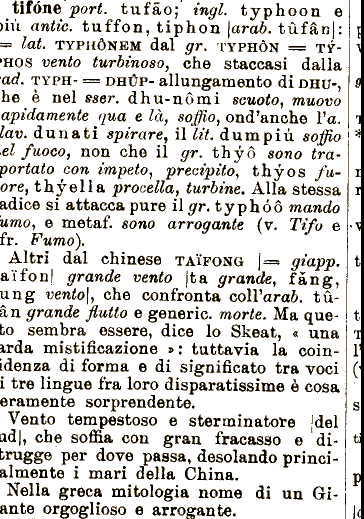 tifóne port. tufão; ingl. typhoon e
più antic. tuffon, tiphon [arab. tûfân]:
= lat. TYPHÔNEM dal gr. TYPHÔN = TÝ-
PHOS vento turbinoso, che staccasi dalla
rad. TYPH- = DHÛP- allungamento di DHU-,
che è nel sscr. dhu-nômi scuoto, muovo
rapidamente qua e là, soffio, ond'anche l'a.
slav. dunati spirare, il lit. dumpiù soffio
nel fuoco, non che il gr. thýô sono tra-
portato con impeto, precipito, thýos fu-
rore, thýella procella, turbine. Alla stessa
radice si attacca pure il gr. typhóô mando
fumo, e metaf. sono arrogante (v. Tifo e
cfr. Fumo).
Altri dal chinese TAÏFONG [= giapp.
taïfon] grande vento [ta grande, făng,
fung vento], che confronta coll'arab. tû-
fân grande flutto e generic. morte. Ma que-
sto sembra essere, dice lo Skeat, « una
tarda mistificazione »: tuttavia la coin-
cidenza di forma e di significato tra voci
di tre lingue fra loro disparatissime è cosa
veramente sorprendente.
Vento tempestoso e sterminatore [del
sud], che soffia con gran fracasso e di-
strugge per dove passa, desolando princi-
palmente i mari della China.
Nella greca mitologia nome di un Gi-
gante orgoglioso e arrogante.